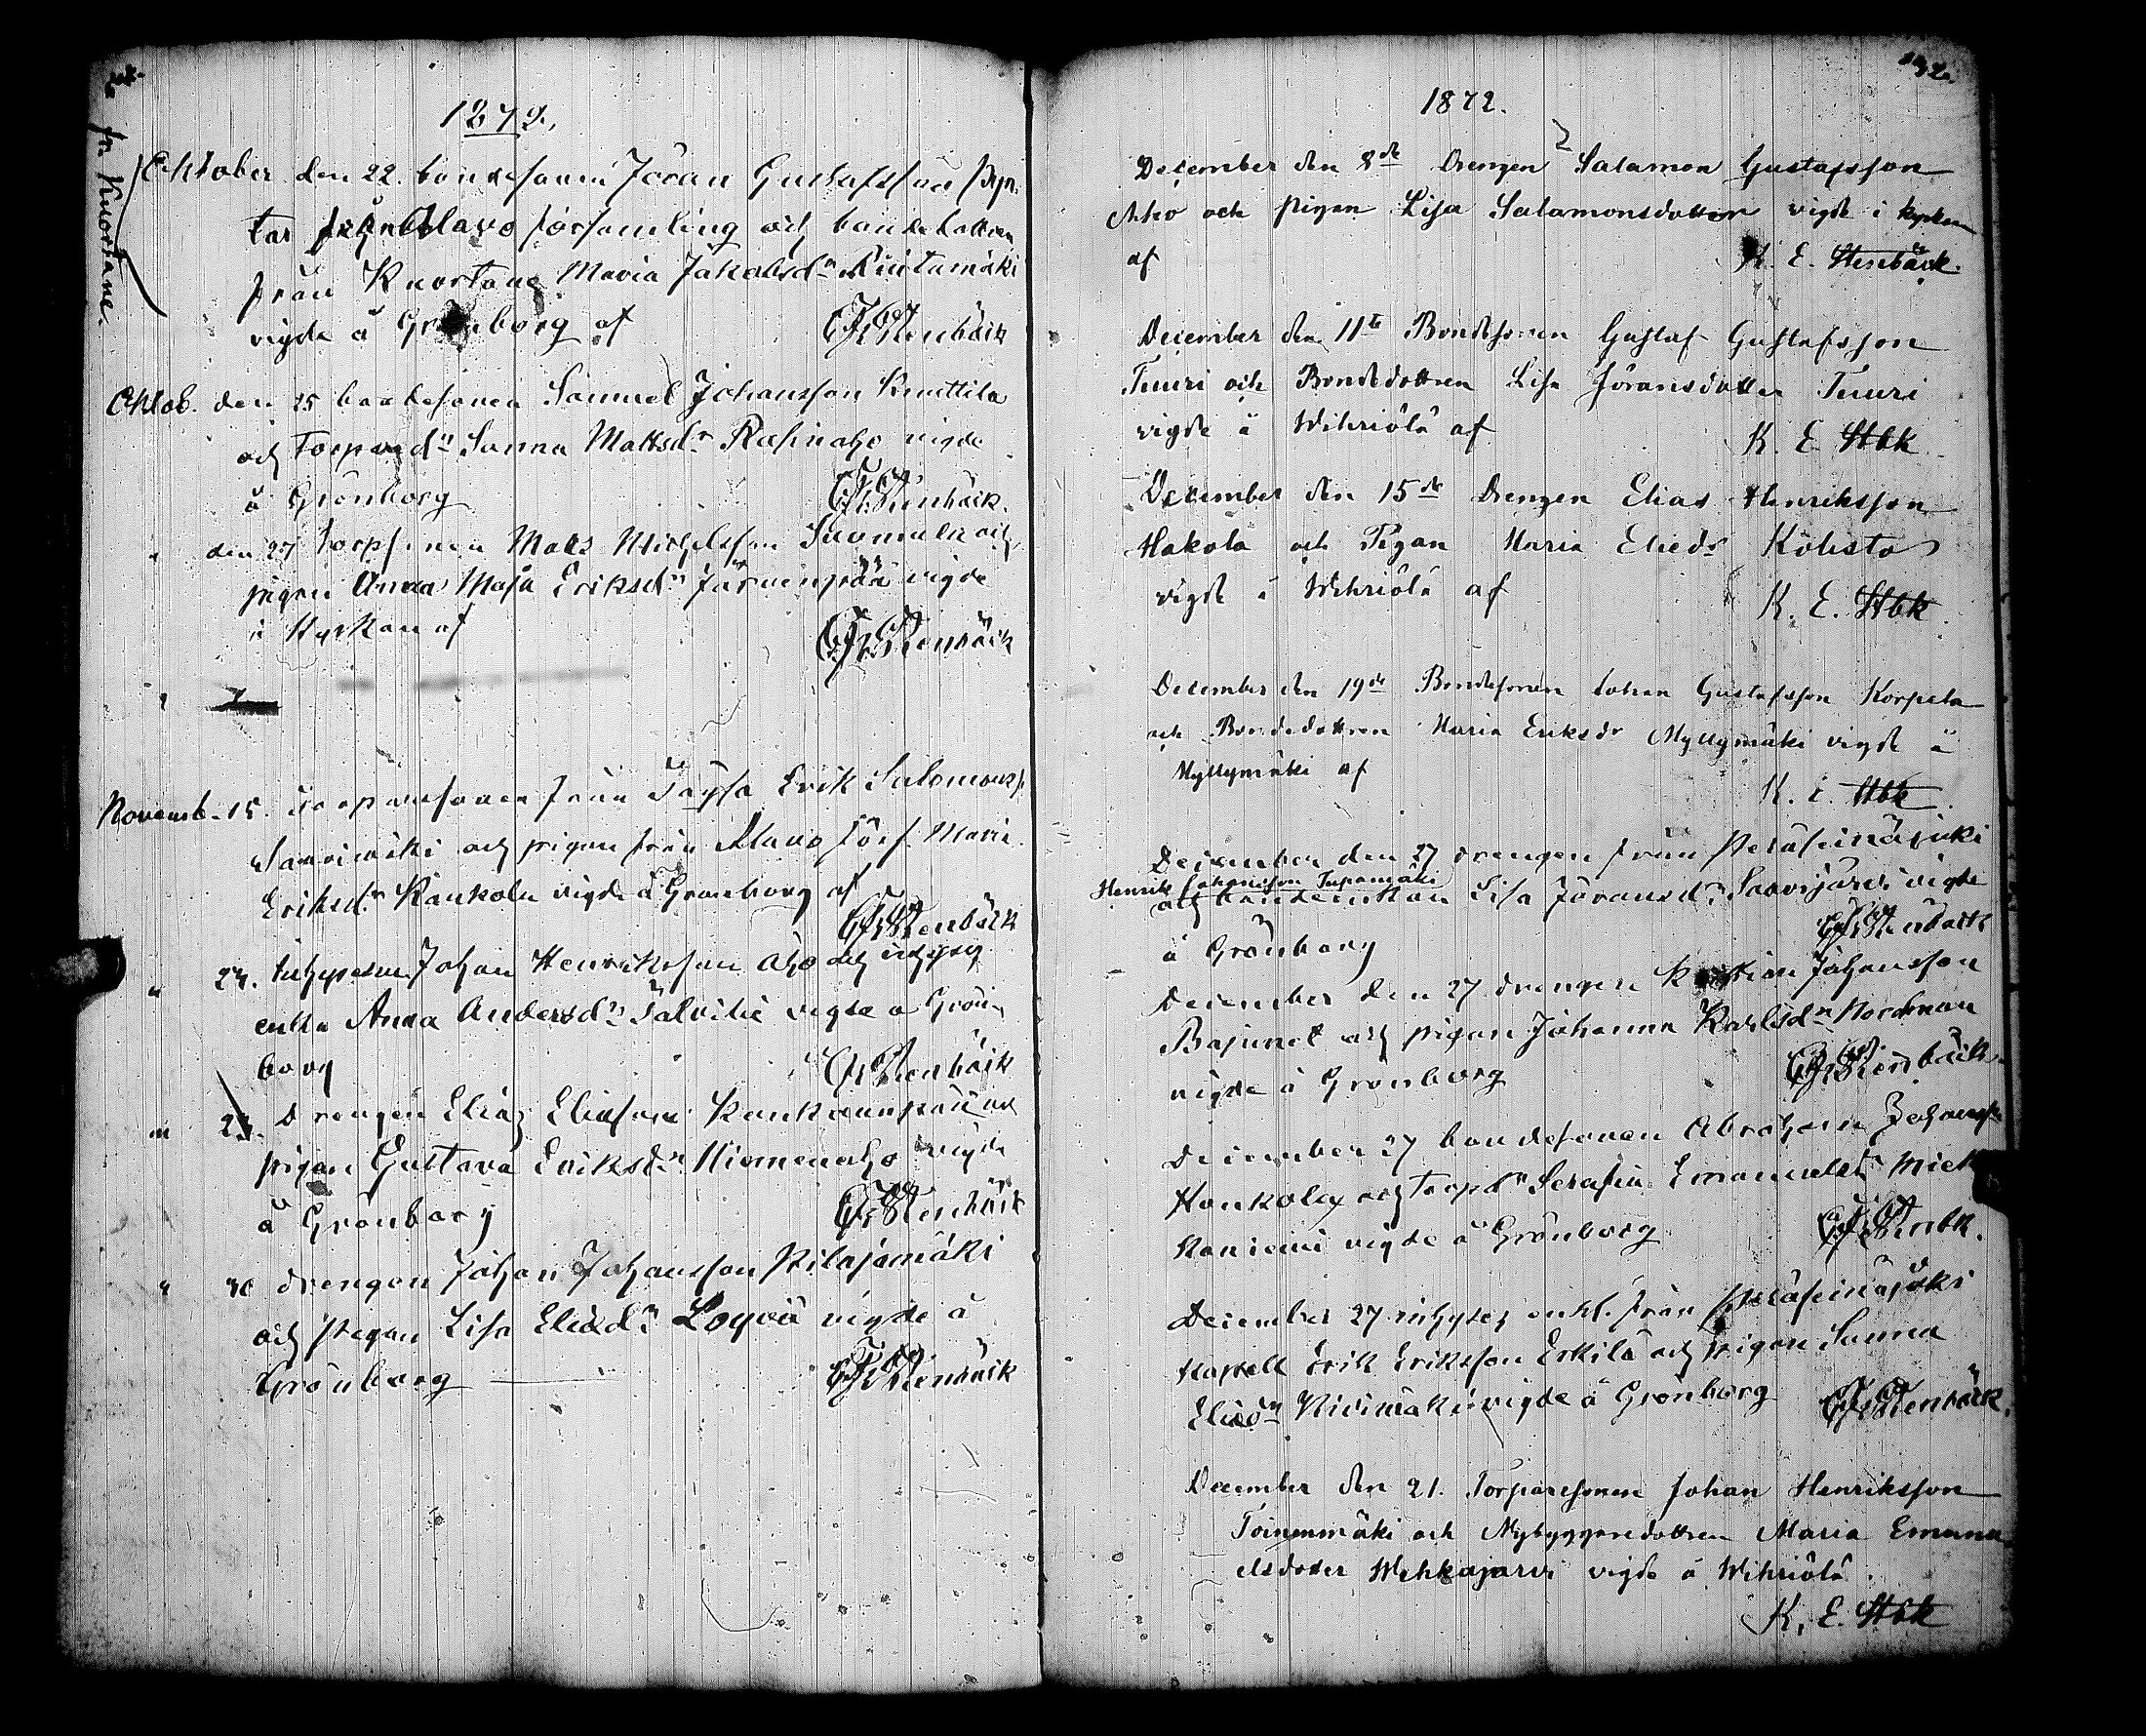 fr. Kuortane.
1872.
Oktober den 22. bondesonen Jöran Gustafsson
från Alavo församling och bondedottren
från Kuortane Maria Jakobsdr Riitamäki
vigde å Grönborg af
Stenbäck
Oktob. den 25 bondesonen Samuel Johansson Knuttila
och Torpared:r Sanna Mattsdr Rasinaho vigde
å Grönborg
Stenbäck.
" den 27 torps:nen Matts Michelsson Suomula och
pigan Anna Maja Eriksdr Järvenpää vigde
i Kyrkan af
Stenbäck
"
Novemb. 15. Torparesonen från Töysä Erik Salomonss.
Saarimäki och pigan från Alavo förs. Maria
Eriksdr Kaukola vigde å Grönborg af
Stenbäck
" Johan Henriksson Aho och inhyses
enka Anna Andersdr vigde å Grön-
borg
Stenbäck
" Drengen Elias Eliasson och
pigan Gustava Eriksdr Niemenaho vigde
å Grönborg
Stenbäck
" 30 drengen Johan Johansson Pilajamäki
och pigan Lisa Eliædr vigde å
Grönborg
Stenbäck
1872.
December den 8de Drengen Salamon Gustafsson
och pigan Lisa Salamonsdotter vigde i kyrkan
af K. E. Stenbäck.
December den 11te Bondesonen Gustaf Gustafsson
Tuuri och Bondedottren Lisa Jöransdotter Tuuri
vigde å Wihriölä af
K. E. Stbk
December den 15de Drengen Elias Henriksson
Hakola och Pigan Maria Eliedr Kohisto
vigde å Wihriölä af
K. E. Stbk.
December den 19de Bondesonen Johan Gustafsson Korpela
och Bondedottren Maria Eriksdr Myllymäki vigde å
Myllymäki af
K. E. Stbk.
December den 27 drengen från Peräseinäjoki
Henrik Johansson Tupamäki
och bondeenkan Lisa Jöransdr Saarijärvi vigde
å Grönborg
Stenbäck
December den 27 drengen Johansson
Bajunet och pigan Johanna Karlsdr Nordman
vigde å Grönborg
Stenbäck.
December 27 bondesonen Abraham
Honkola och Torpdr Serafia Emanuelsdr Miek
kaniemi vigde å Grönborg
Stenbk.
December 27 inhyses enkl. från Peräseinäjoki
Kapell Erik Eriksson Erkilä och pigan Sanna
Eliædr Kivimäki vigde å Grönborg
Stenbäck.
December den 21. Torparesonen Johan Henriksson
Toinenmäki och Nybyggaredottren Maria Emanu
elsdotter Wehkajärvi vigde å Wihriölä.
K. E. Stbk